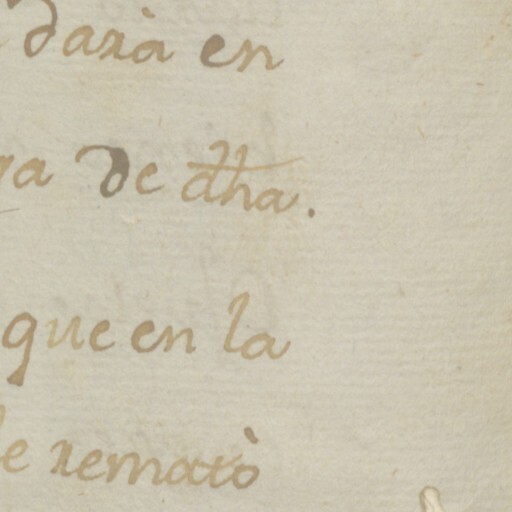 darà en
de dha.
que en la
rematò